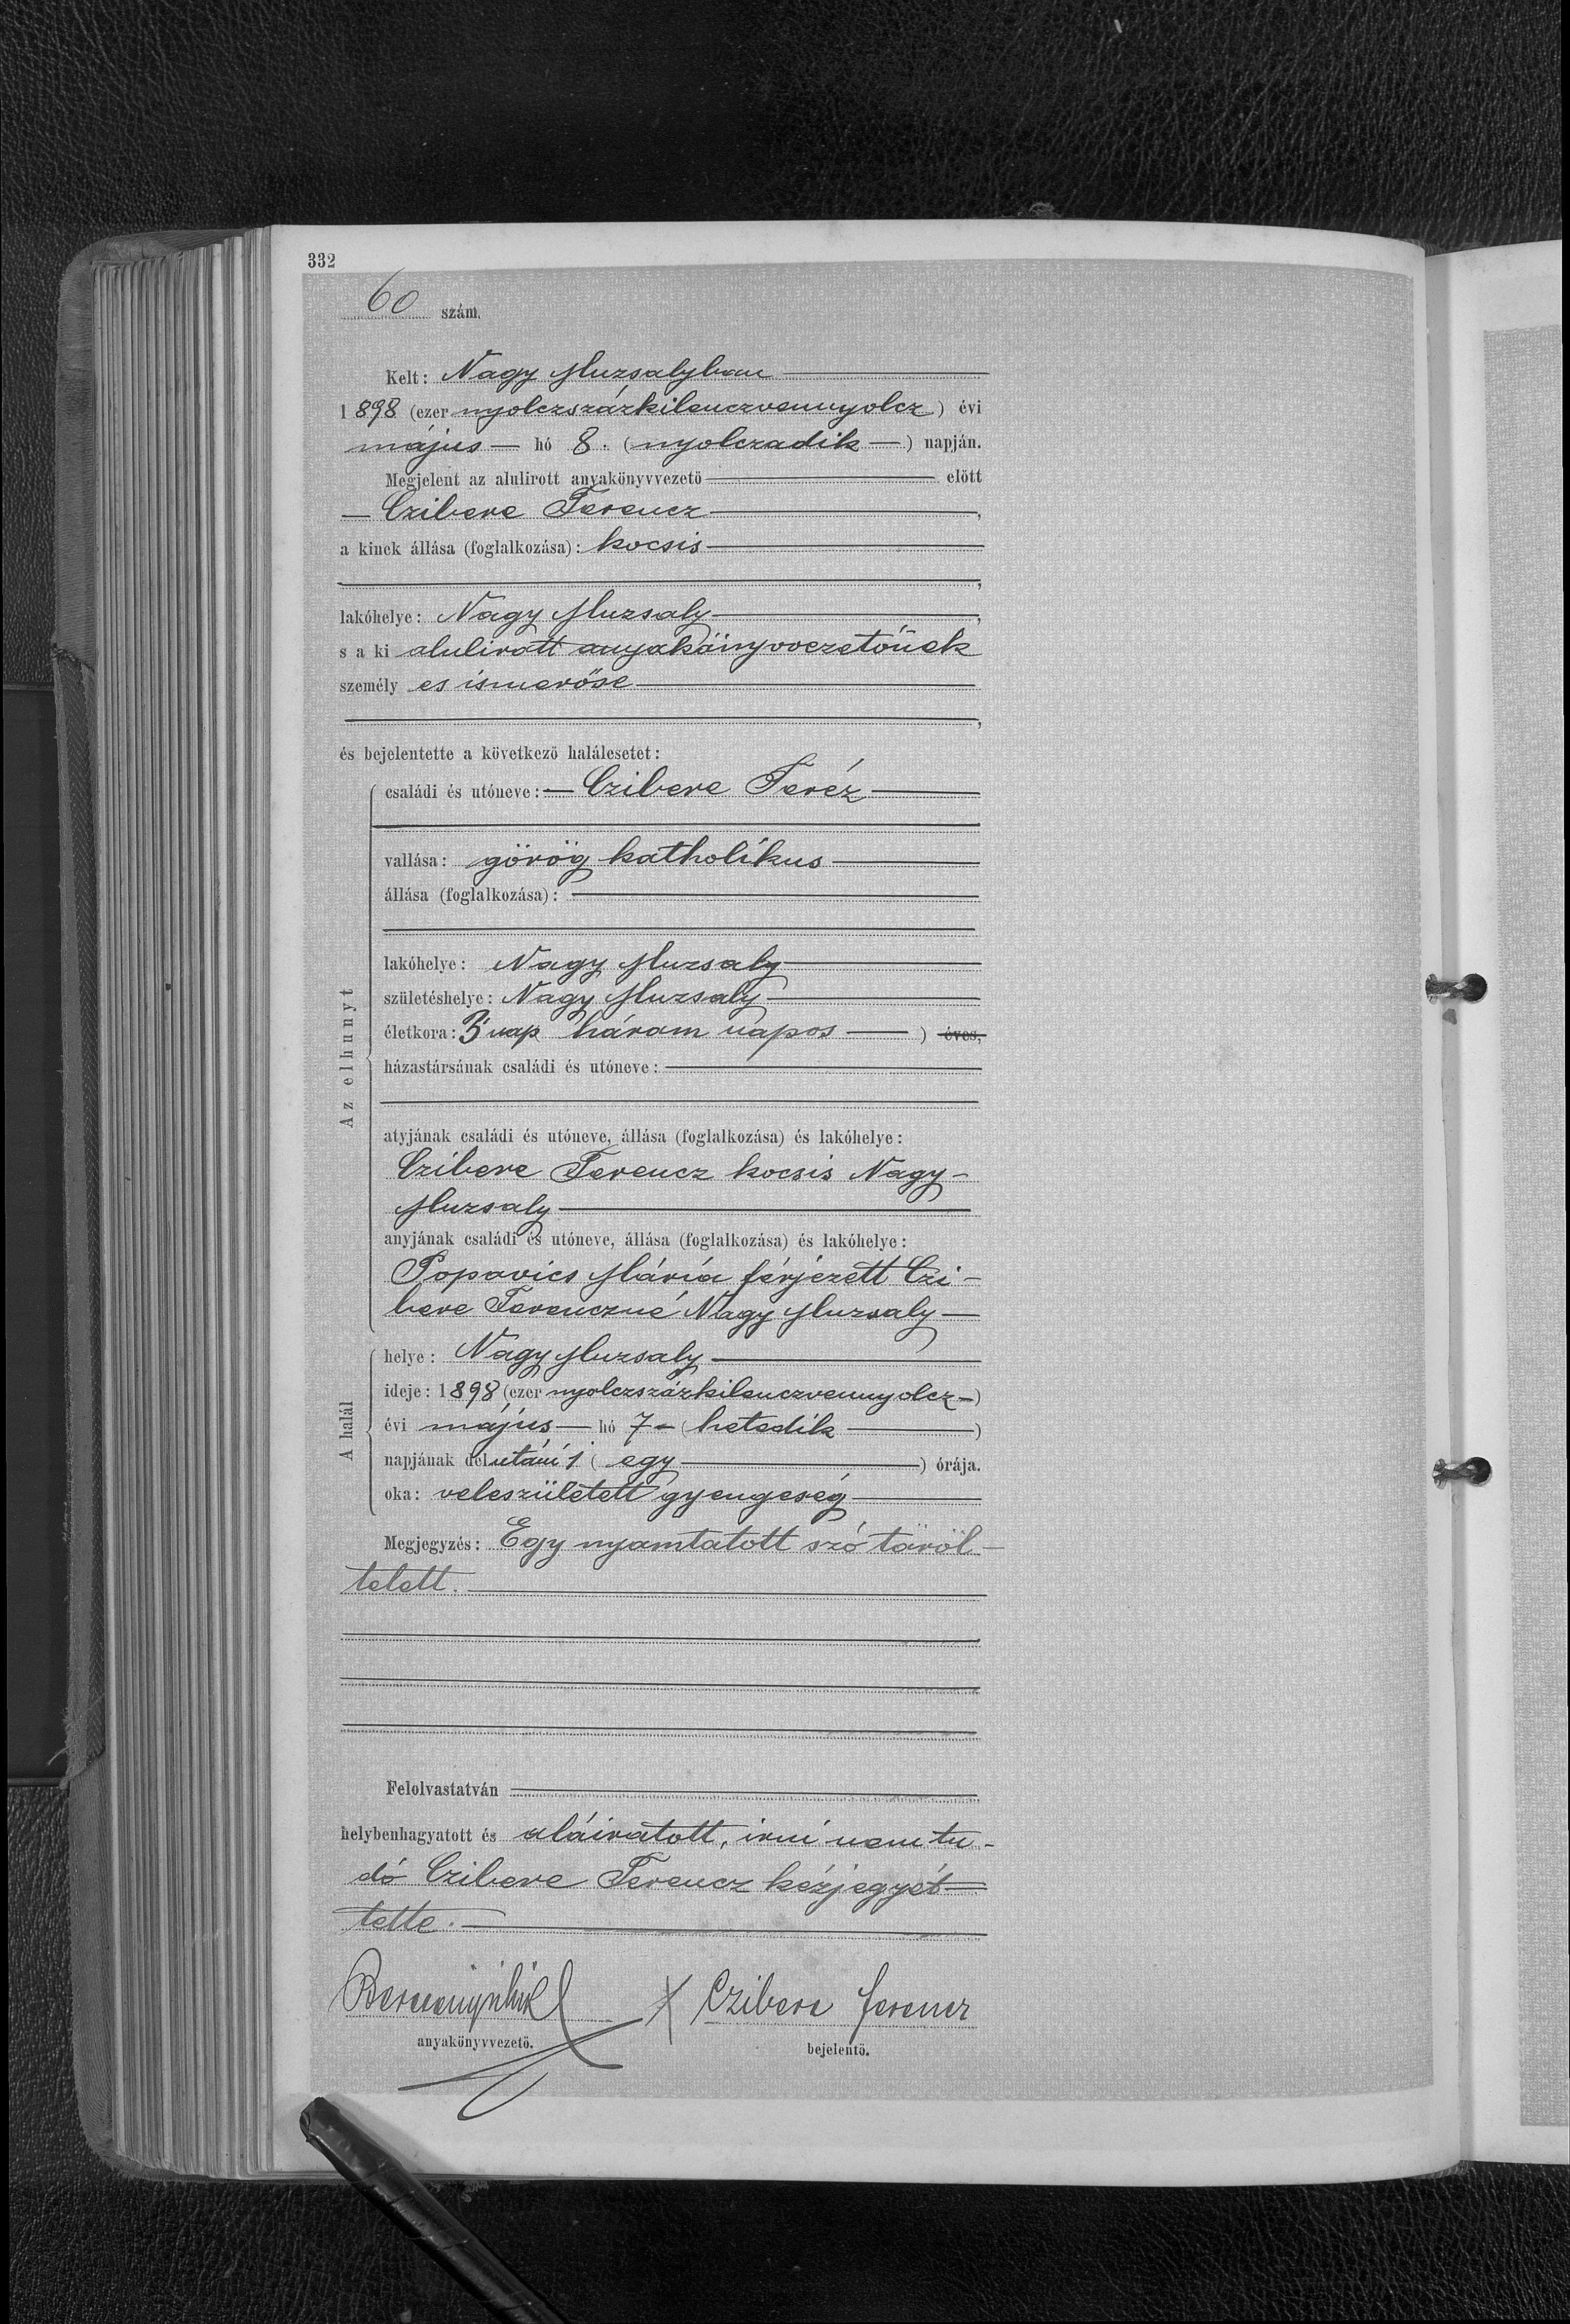 332
60 szám.
Kelt: Nagy Muzsalyban
1898 (ezer nyolczszázkilenczvennyolcz) évi
május hó 8. (nyolczadik) napján.
Megjelent az alulirott anyakönyvvezető előtt
Czibere Ferencz,
a kinek állása (foglalkozása): kocsis
,
lakóhelye: Nagy Muzsaly,
s a ki alulirott anyakönyvvezetőnek
személyes ismerőse
,
és bejelentette a következő halálesetet:
Az elhunyt
családi és utóneve: Czibere Teréz
vallása: görög katholikus
állása (foglalkozása):
lakóhelye: Nagy Muzsaly
születéshelye: Nagy Muzsaly
életkora: 3 nap három napos ) éves,
házastársának családi és utóneve:
atyjának családi és utóneve, állása (foglalkozása) és lakóhelye:
Czibere Ferencz kocsis Nagy-
Muzsaly
anyjának családi és utóneve, állása (foglalkozása) és lakóhelye:
Popovics Mária férjezett Czi-
bere Ferenczné Nagy Muzsaly
A halál
helye: Nagy Muzsaly
ideje: 1898 (ezer nyolczszázkilenczvennyolcz)
évi május hó 7 (hetedik)
napjának délutáni 1 (egy) órája.
oka: veleszületett gyengeség
Megjegyzés: Egy nyomtatott szó töröl-
tetett.
Felolvastatván
helybenhagyatott és aláiratott, irni nem tu-
dó Czibere Ferencz kézjegyét
tette.
X Czibere Ferencz
anyakönyvvezető. bejelentő.